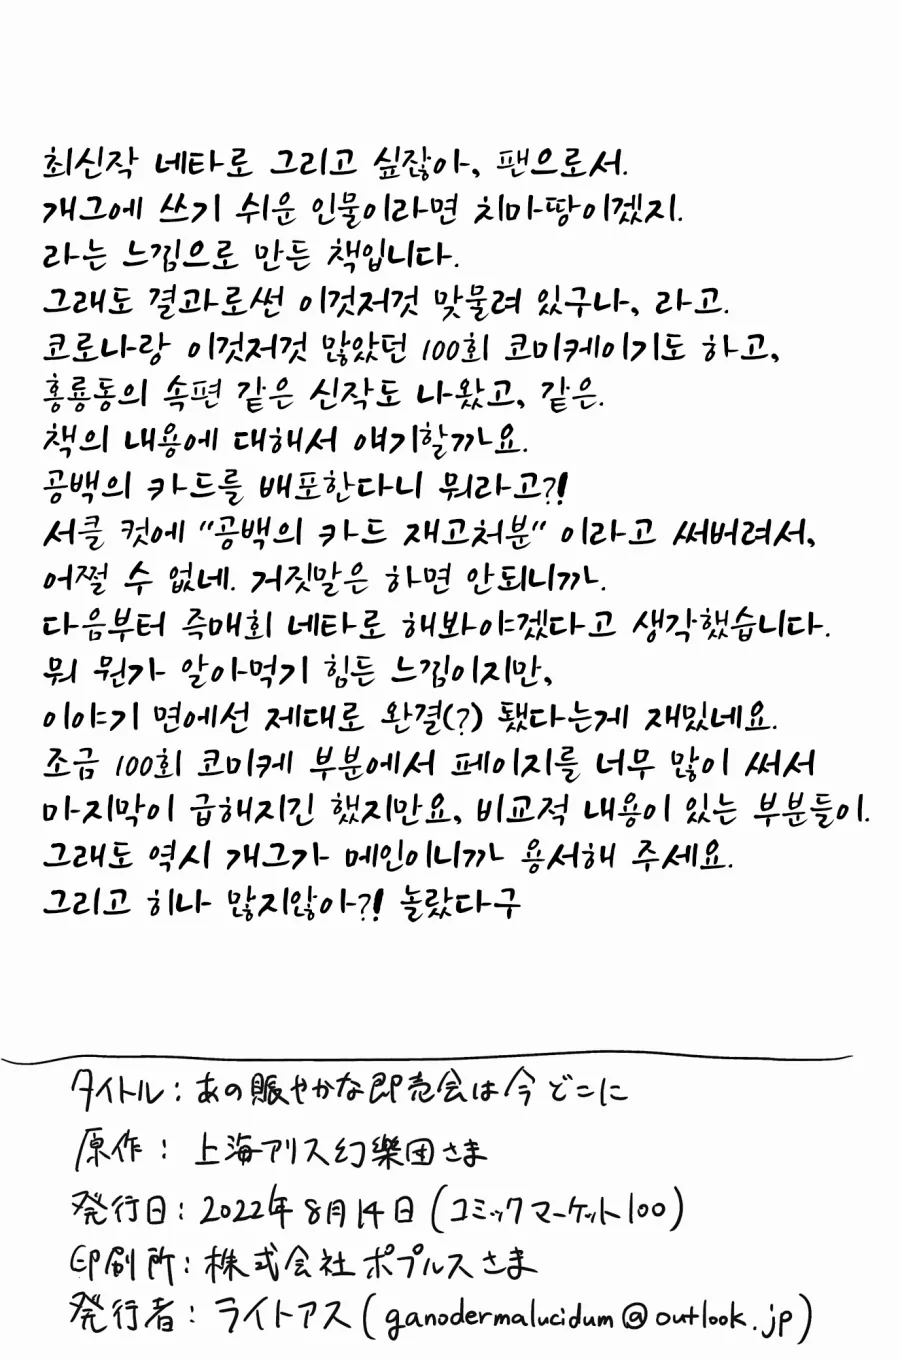 최신작 네타로 그리고 싶잖아, 팬으로서.
개그에 쓰기 쉬운 인물이라면 치마땅이겠지.
라는 느낌으로 만든 책입니다.
그래도 결과로썬 이것저것 맞물려 있구나, 라고.
코로나랑 이것저것 많았던 100회 코미케이기도 하고,
홍룡동의 속편 같은 신작도 나왔고, 같은.
책의 내용에 대해서 얘기할까요.
공백의 카드를 배포한다니 뭐라고?!
서클 컷에 "공백의 카드 재고처분" 이라고 써버려서,
어쩔 수 없네. 거짓말은 하면 안되니까.
다음부터 즉매회 네타로 해봐야겠다고 생각했습니다.
뭐 뭔가 알아먹기 힘든 느낌이지만,
이야기 면에선 제대로 완결(?) 됐다는게 재밌네요.
조금 100회 코미케 부분에서 페이지를 너무 많이 써서
마지막이 급해지긴 했지만요, 비교적 내용이 있는 부분들이.
그래도 역시 개그가 메인이니까 용서해 주세요.
그리고 히나 많지않아?! 놀랐다구
タイトル：あの賑やかな即売会は今どこに
原作：上海アリス幻樂団さま
発行日：2022年8月14日(コミックマーケット100)
印刷所：株式会社ポプルスさま
発行者：ライトアス(ganodermalucidum@outlook.jp)